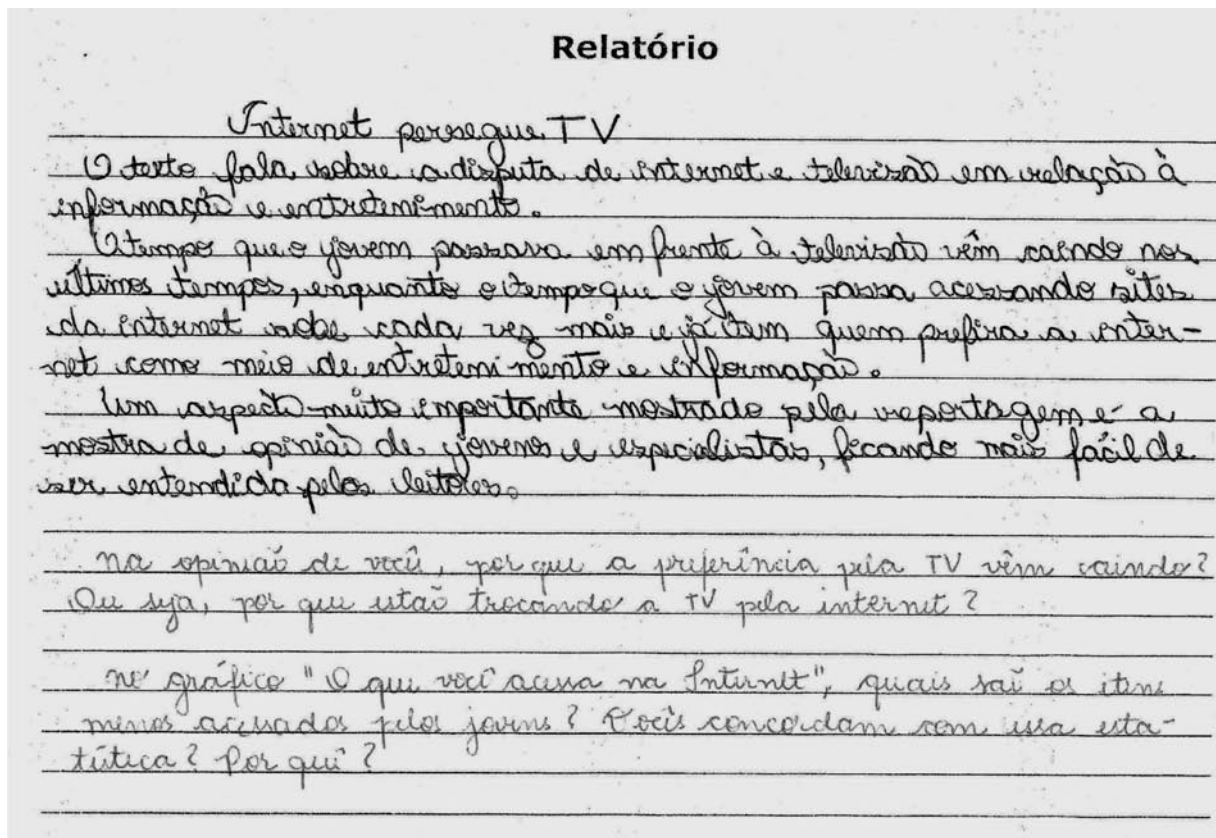 Relatório
Internet persegue TV
O texto fala sobre a disputa de internet e televisão em relação à
informação e entretenimento.
O tempo que o jovem passava em frente à televisão vêm caindo nos
últimos tempos, enquanto o tempo que o jovem passa acessando sites
da internet sobe cada vez mais e já tem quem prefira a inter-
net como meio de entretenimento e informação.
Um aspecto muito importante mostrado pela reportagem é a
mostra de opinião de jovens e especialistas, ficando mais fácil de
ser entendida pelos leitores.
Na opinião de você, por que a preferência pela TV vêm caindo?
Ou seja, por que estão trocando a TV pela internet?
No gráfico "O que você acessa na Internet", quais são os itens
menos acessados pelos jovens? Vocês concordam com essa esta-
tística? Por quê?